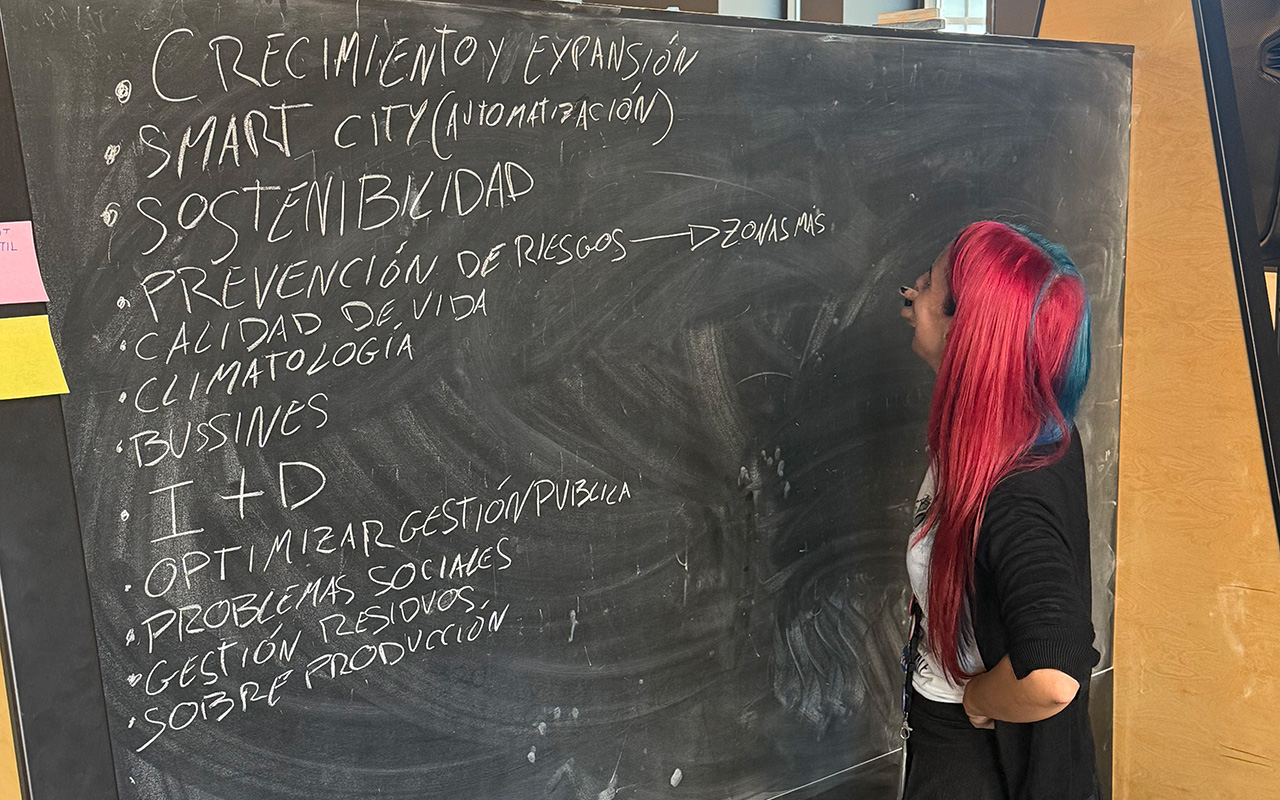 • CRECIMIENTO Y EXPANSIÓN
• SMART CITY (AUTOMATIZACIÓN)
• SOSTENIBILIDAD
• PREVENCIÓN DE RIESGOS → ZONAS MÁS
• CALIDAD DE VIDA
• CLIMATOLOGÍA
• BUSSINES
• I + D
• OPTIMIZAR GESTIÓN PUBLICA
• PROBLEMAS SOCIALES
• GESTIÓN RESIDUOS
• SOBRE PRODUCCIÓN